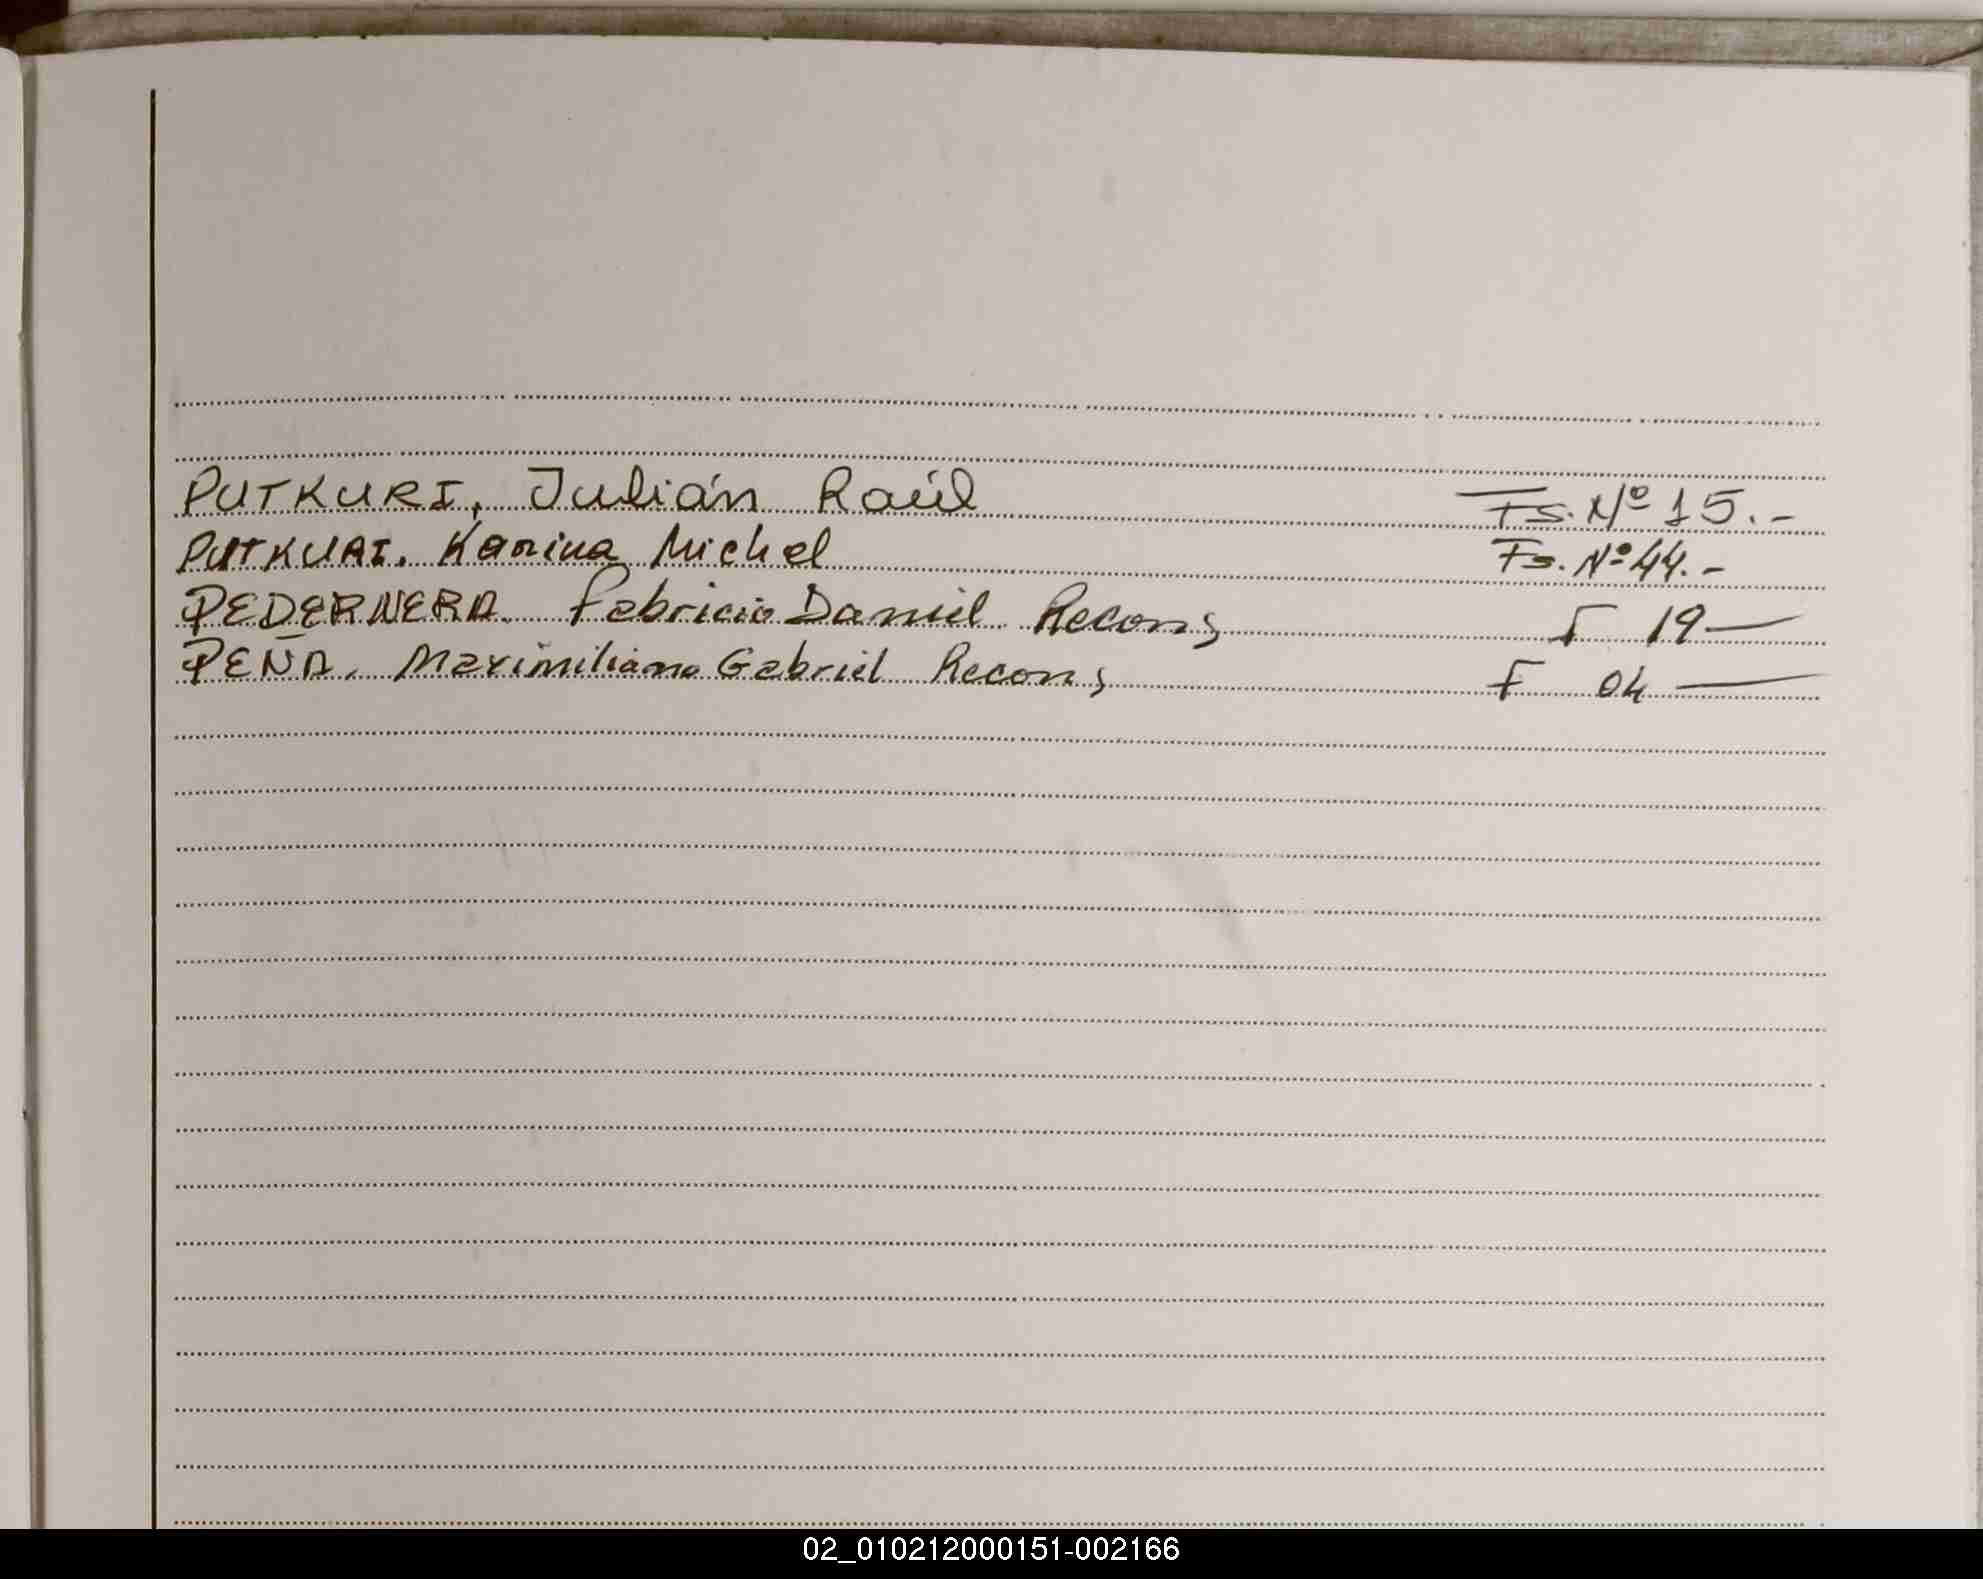 PUTKURI, Julián Raúl Fs. Nº 15.-
PUTKURI. Karina Michel Fs. Nº 44.-
PEDERNERA. Fabricio Daniel Recons F 19—
PEÑA. Maximiliano Gabriel Recons F 04 —
02_010212000151-002166